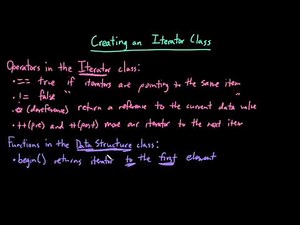 Creating an Iterator Class
Operators in the Iterator class:
• == true if iterators are pointing to the same item
• != false " "
• * (dereference) return a reference to the current data value
• ++(pre) and ++(post) move our iterator to the next item
Functions in the Data Structure class:
• begin() returns iterator to the first element